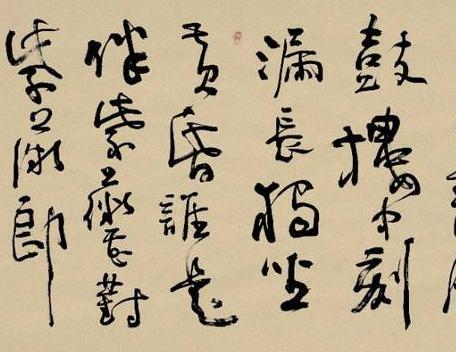 鼓樓中刻
漏長獨坐
黃昏誰是
伴紫薇花對
紫薇郎